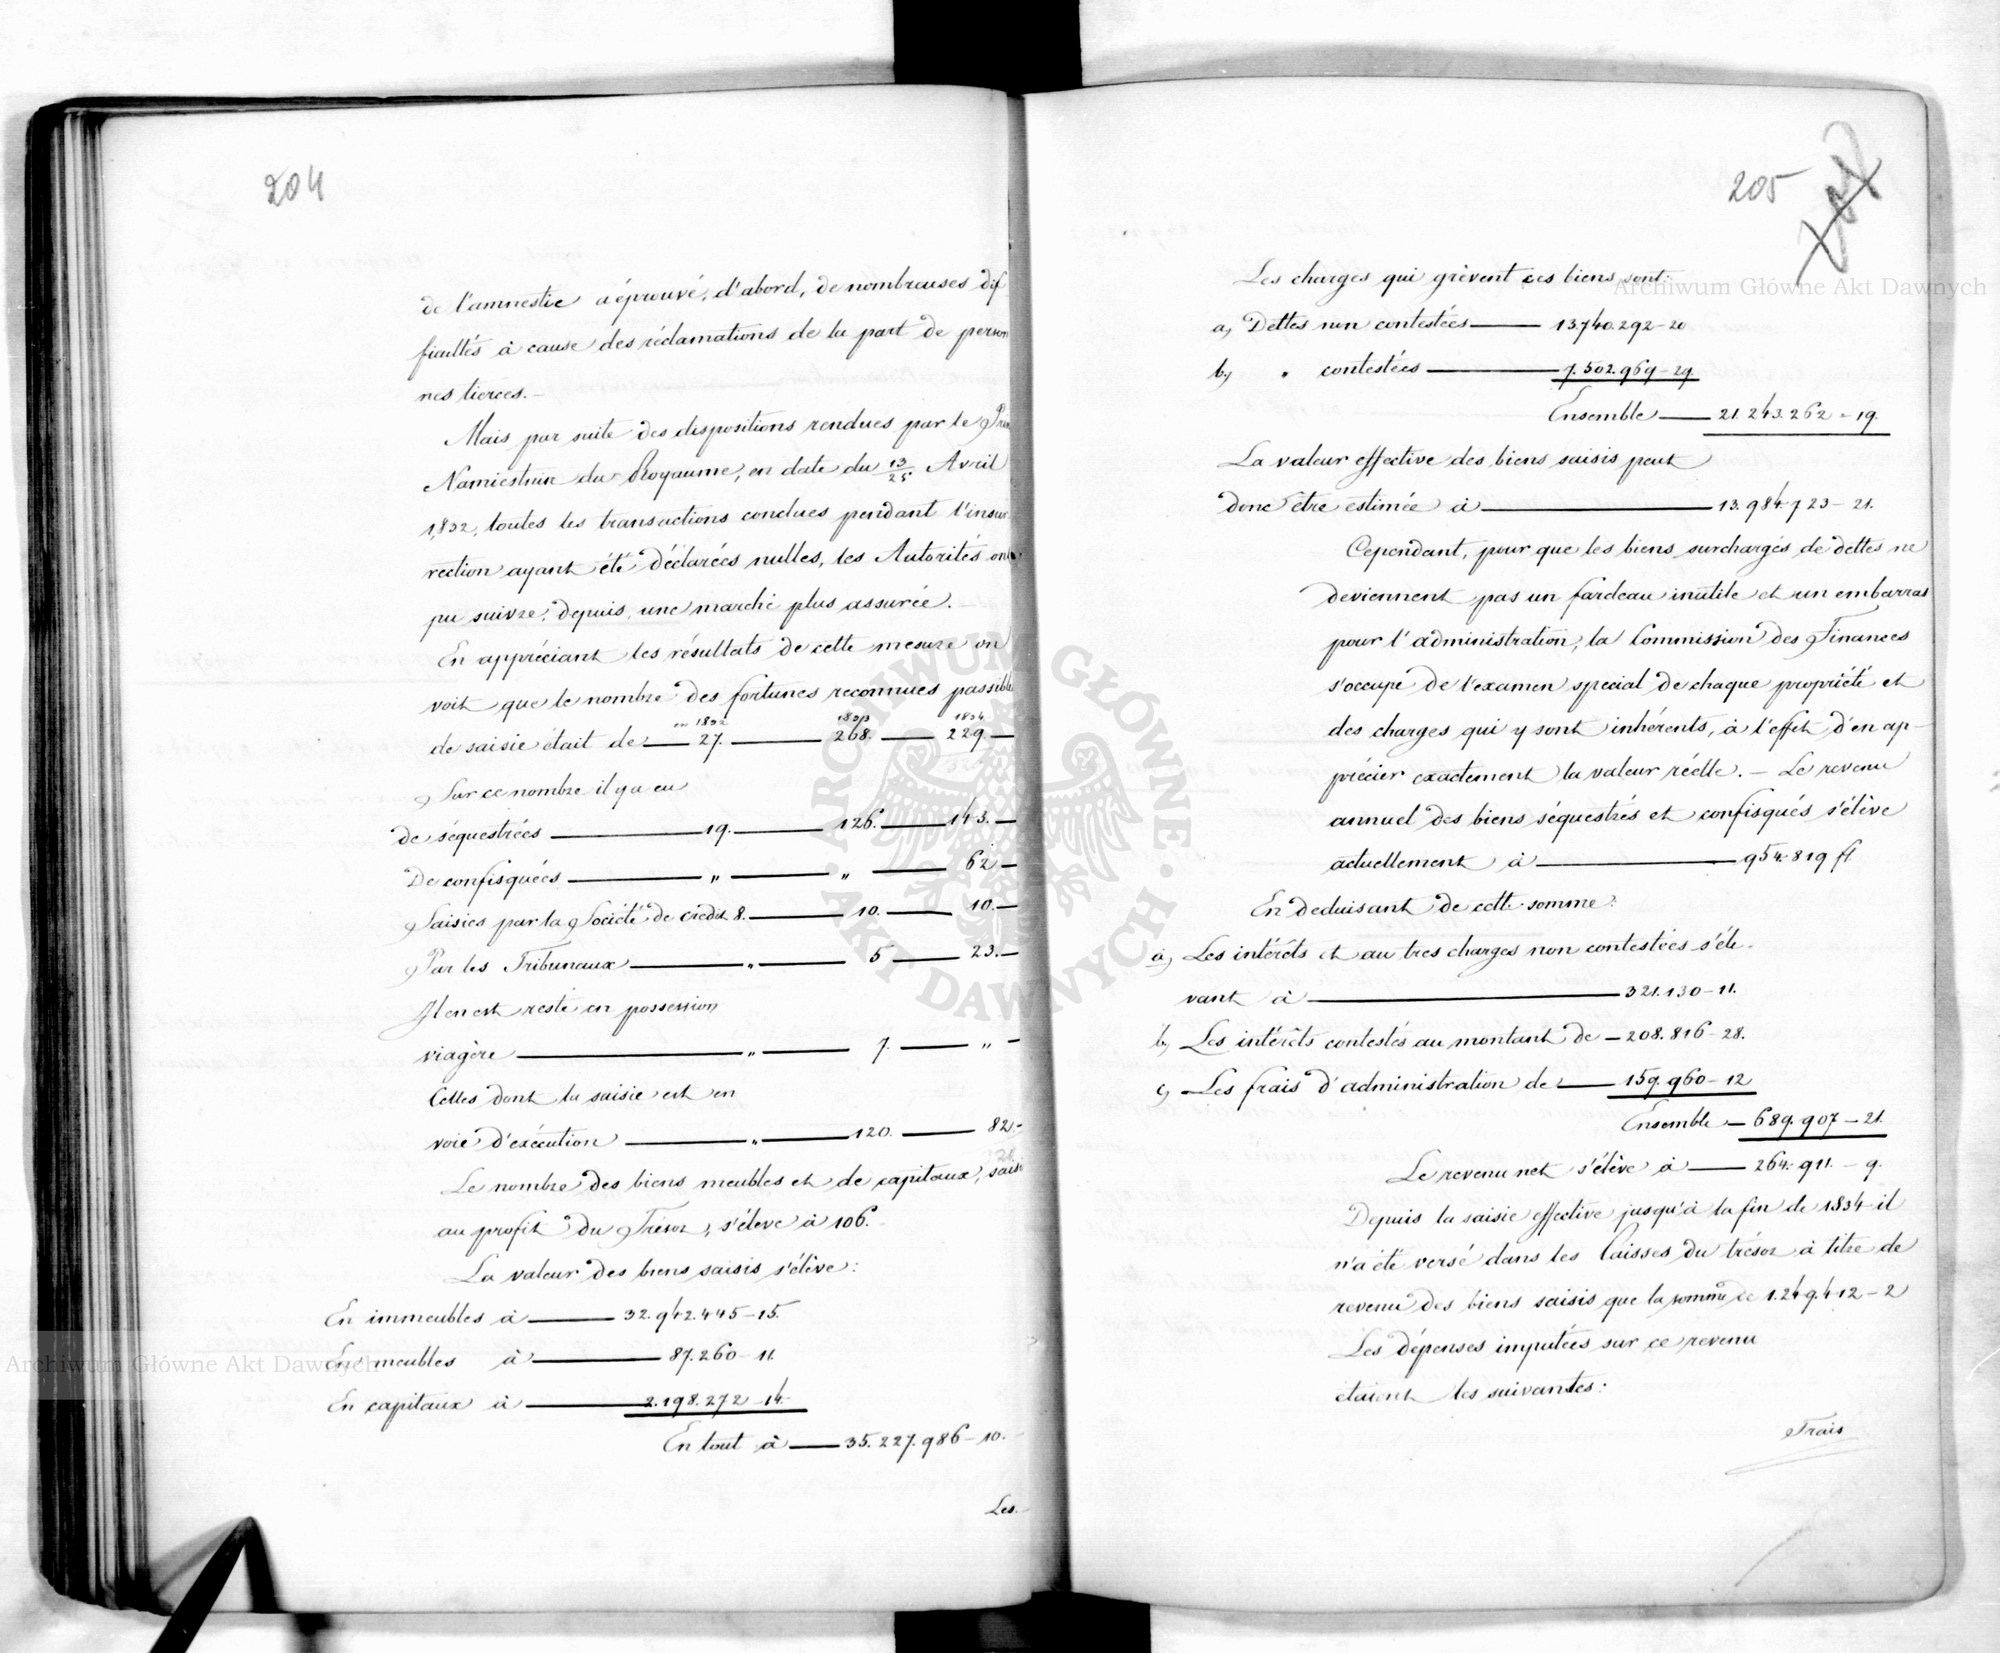 204
de l'amnestie a éprouvé, d'abord, de nombreuses dif
ficultés à cause des réclamations de la part de person
nes tierces.—
Mais par suite des dispositions rendues par le Prin
Namiestnik du Royaume, en date du 13/25 Avril
1832, toutes les transactions conclues pendant l'insur
rection ayant été déclarées nulles, les Autorités ont
pu suivre, depuis, une marche plus assurée.
En appréciant les résultats de cette mesure on
voit que le nombre des fortunes reconnues passibles
en 1832 1833 1834
de saisie était de — 27. — 268. — 229. —
Sur ce nombre il y a eu
de séquestrées — 19. — 126. — 143. —
De confisquées — " — " — 62 —
Saisies par la Société de crédit 8. — 10. — 10. —
Par les Tribunaux — " — 5 — 23. —
Il en est resté en possession
viagère — " — 7. — " —
Celles dont la saisie est en
voie d'exécution — " — 120. — 82. —
Le nombre des biens meubles et de capitaux, saisis
au profit du Trésor, s'élève à 106.
La valeur des biens saisis s'élève:
En immeubles à — 32.942.445—15.
En meubles à — 87.260—11.
En capitaux à — 2.198.272—14.
En tout à — 35.227.986—10.
Les.
205
Les charges qui grèvent ces biens sont:
a, Dettes non contestées — 13.740.292—20
b, " contestées — 7.502.969—29.
Ensemble — 21.243.262—19.
La valeur effective des biens saisis peut
donc être estimée à — 13.984.723—21.
Cependant, pour que les biens surchargés de dettes ne
deviennent pas un fardeau inutile et un embarras
pour l'administration, la Commission des Finances
s'occupe de l'examen special de chaque propriété et
des charges qui y sont inhérents, à l'effet d'en ap-
précier exactement la valeur réelle.— Le revenu
annuel des biens séquestrés et confisqués s'élève
actuellement à — 954.819 fl.
En deduisant de cette somme:
a, Les intérêts et autres charges non contestées s'éle-
vant à — 321.130—11.
b, Les intérêts contestés au montant de — 208.816—28.
c, Les frais d'administration de — 159.960—12
Ensemble — 689.907—21.
Le revenu net s'élève à — 264.911.—9.
Depuis la saisie effective jusqu'à la fin de 1834 il
n'a été versé dans les Caisses du trésor à titre de
revenu des biens saisis que la somme de 1.249.412—2
Les dépenses imputées sur ce revenu
étaient les suivantes:
Frais
Archiwum Główne Akt Dawnych
Archiwum Główne Akt Dawnych
ARCHIWUM GŁÓWNE · AKT DAWNYCH ·